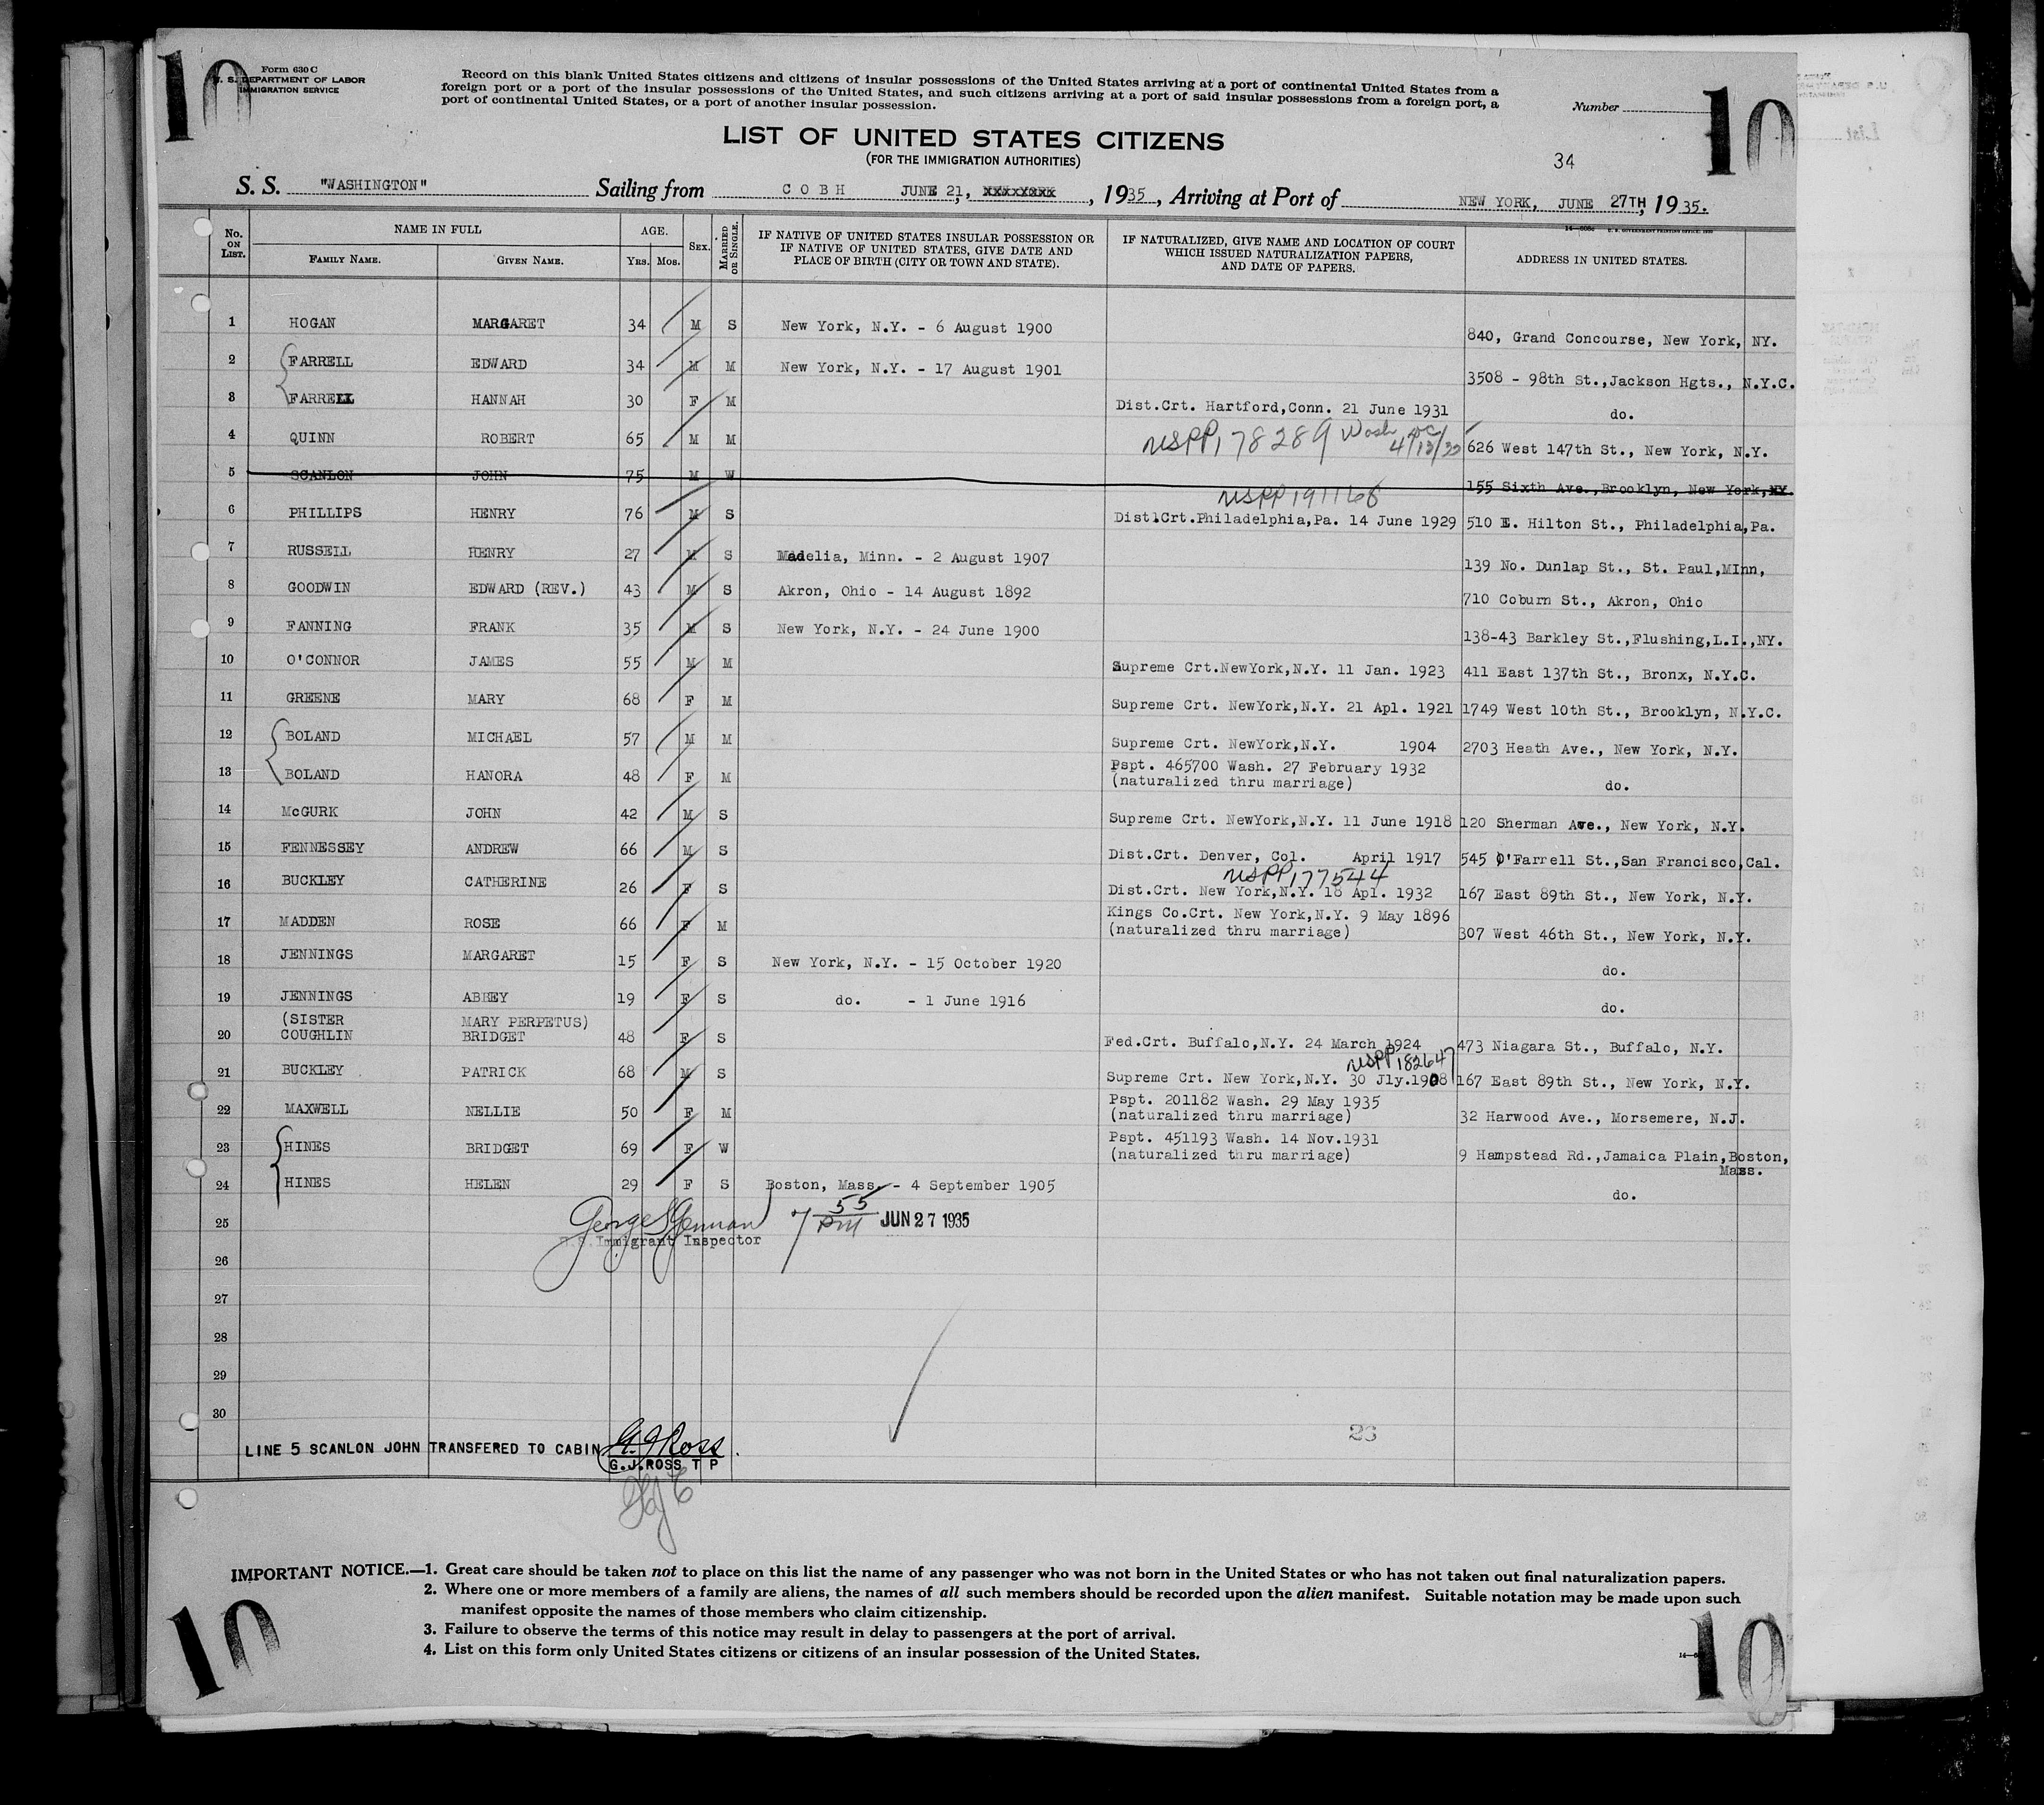 10
Form 630 C
U. S. DEPARTMENT OF LABOR
IMMIGRATION SERVICE
Record on this blank United States citizens and citizens of insular possessions of the United States arriving at a port of continental United States from a
foreign port or a port of the insular possessions of the United States, and such citizens arriving at a port of said insular possessions from a foreign port, a
port of continental United States, or a port of another insular possession.
Number
10
LIST OF UNITED STATES CITIZENS
(FOR THE IMMIGRATION AUTHORITIES)
34
S. S. "WASHINGTON" Sailing from COBH JUNE 21, , 1935, Arriving at Port of NEW YORK, JUNE 27TH, 1935.
No. ON LIST. NAME IN FULL FAMILY NAME. GIVEN NAME. AGE. YRS. MOS. SEX. MARRIED OR SINGLE. IF NATIVE OF UNITED STATES INSULAR POSSESSION OR IF NATIVE OF UNITED STATES, GIVE DATE AND PLACE OF BIRTH (CITY OR TOWN AND STATE). IF NATURALIZED, GIVE NAME AND LOCATION OF COURT WHICH ISSUED NATURALIZATION PAPERS, AND DATE OF PAPERS. ADDRESS IN UNITED STATES.
1 HOGAN MARGARET 34 M S New York, N.Y. - 6 August 1900 840, Grand Concourse, New York, NY.
2 FARRELL EDWARD 34 M M New York, N.Y. - 17 August 1901 3508 - 98th St.,Jackson Hgts., N.Y.C.
3 FARRELL HANNAH 30 F M Dist.Crt. Hartford,Conn. 21 June 1931 do.
4 QUINN ROBERT 65 M M USPP178289 Wash DC 626 West 147th St., New York, N.Y.
5 SCANLON JOHN 75 M W 155 Sixth Ave.,Brooklyn, New York,NY.
USPP191168
6 PHILLIPS HENRY 76 M S Dist.Crt.Philadelphia,Pa. 14 June 1929 510 E. Hilton St., Philadelphia,Pa.
7 RUSSELL HENRY 27 M S Madelia, Minn. - 2 August 1907 139 No. Dunlap St., St. Paul,MInn,
8 GOODWIN EDWARD (REV.) 43 M S Akron, Ohio - 14 August 1892 710 Coburn St., Akron, Ohio
9 FANNING FRANK 35 M S New York, N.Y. - 24 June 1900 138-43 Barkley St.,Flushing,L.I.,NY.
10 O'CONNOR JAMES 55 M M Supreme Crt.NewYork,N.Y. 11 Jan. 1923 411 East 137th St., Bronx, N.Y.C.
11 GREENE MARY 68 F M Supreme Crt. NewYork,N.Y. 21 Apl. 1921 1749 West 10th St., Brooklyn, N.Y.C.
12 BOLAND MICHAEL 57 M M Supreme Crt. NewYork,N.Y. 1904 2703 Heath Ave., New York, N.Y.
13 BOLAND HANORA 48 F M Pspt. 465700 Wash. 27 February 1932 (naturalized thru marriage) do.
14 McGURK JOHN 42 M S Supreme Crt. NewYork,N.Y. 11 June 1918 120 Sherman Ave., New York, N.Y.
15 FENNESSEY ANDREW 66 M S Dist.Crt. Denver, Col. April 1917 545 O'Farrell St.,San Francisco,Cal.
USPP177544
16 BUCKLEY CATHERINE 26 F S Dist.Crt. New York,N.Y. 18 Apl. 1932 167 East 89th St., New York, N.Y.
17 MADDEN ROSE 66 F M Kings Co.Crt. New York,N.Y. 9 May 1896 (naturalized thru marriage) 307 West 46th St., New York, N.Y.
18 JENNINGS MARGARET 15 F S New York, N.Y. - 15 October 1920 do.
19 JENNINGS ABBEY 19 F S do. - 1 June 1916 do.
(SISTER MARY PERPETUS)
20 COUGHLIN BRIDGET 48 F S Fed.Crt. Buffalo,N.Y. 24 March 1924 473 Niagara St., Buffalo, N.Y.
USPP182647
21 BUCKLEY PATRICK 68 M S Supreme Crt. New York,N.Y. 30 Jly.1908 167 East 89th St., New York, N.Y.
22 MAXWELL NELLIE 50 F M Pspt. 201182 Wash. 29 May 1935 (naturalized thru marriage) 32 Harwood Ave., Morsemere, N.J.
23 HINES BRIDGET 69 F W Pspt. 451193 Wash. 14 Nov.1931 (naturalized thru marriage) 9 Hampstead Rd.,Jamaica Plain,Boston, Mass.
24 HINES HELEN 29 F S Boston, Mass. - 4 September 1905 do.
25 7 55 PM JUN 27 1935
U.S.Immigrant Inspector
26
27
28
29
30
23
LINE 5 SCANLON JOHN TRANSFERED TO CABIN G.J.Ross
G.J.ROSS T P
IMPORTANT NOTICE.—1. Great care should be taken not to place on this list the name of any passenger who was not born in the United States or who has not taken out final naturalization papers.
2. Where one or more members of a family are aliens, the names of all such members should be recorded upon the alien manifest. Suitable notation may be made upon such
manifest opposite the names of those members who claim citizenship.
3. Failure to observe the terms of this notice may result in delay to passengers at the port of arrival.
4. List on this form only United States citizens or citizens of an insular possession of the United States.
10
10